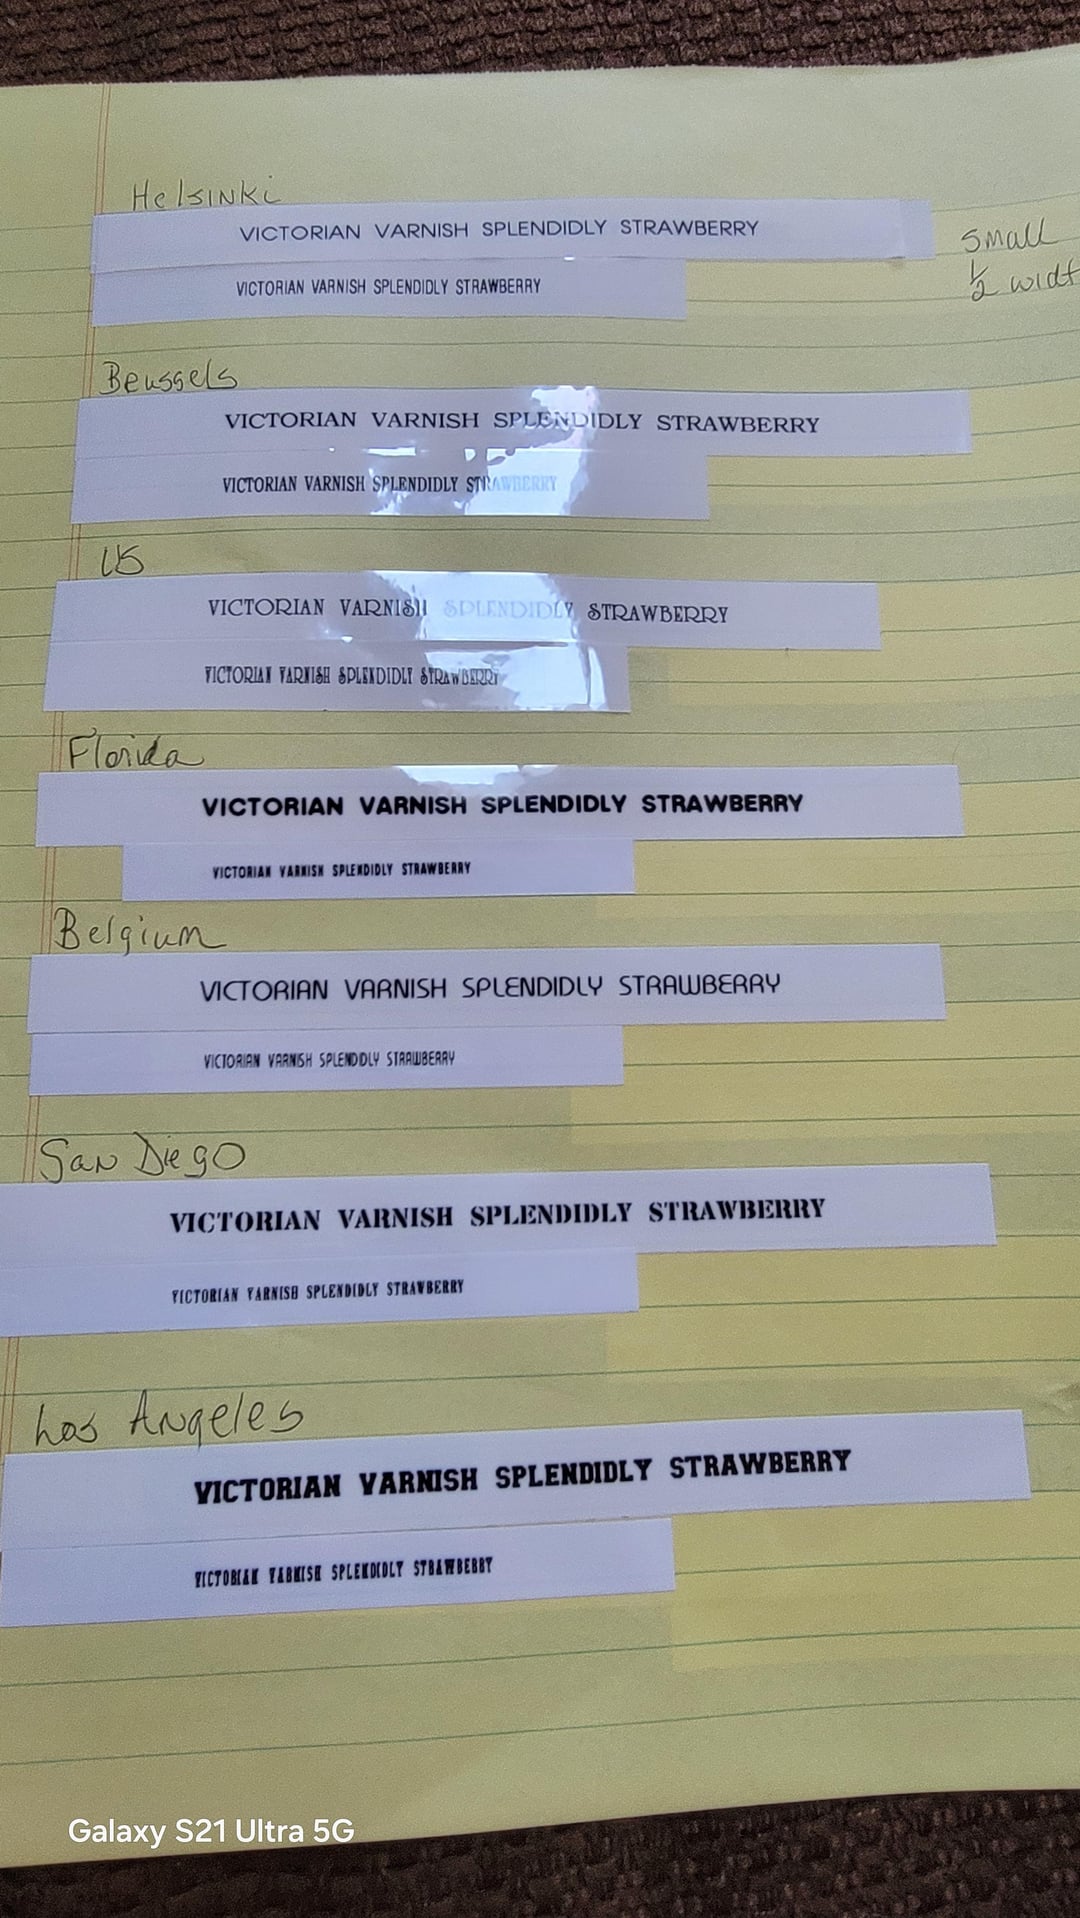 Helsinki
VICTORIAN VARNISH SPLENDIDLY STRAWBERRY
small
VICTORIAN VARNISH SPLENDIDLY STRAWBERRY
1/2 widt
Beussels
VICTORIAN VARNISH SPLENDIDLY STRAWBERRY
VICTORIAN VARNISH SPLENDIDLY STRAWBERRY
US
VICTORIAN VARNISH SPLENDIDLY STRAWBERRY
VICTORIAN VARNISH SPLENDIDLY STRAWBERRY
Florida
VICTORIAN VARNISH SPLENDIDLY STRAWBERRY
VICTORIAN VARNISH SPLENDIDLY STRAWBERRY
Belgium
VICTORIAN VARNISH SPLENDIDLY STRAWBERRY
VICTORIAN VARNISH SPLENDIDLY STRAWBERRY
San Diego
VICTORIAN VARNISH SPLENDIDLY STRAWBERRY
VICTORIAN VARNISH SPLENDIDLY STRAWBERRY
Los Angeles
VICTORIAN VARNISH SPLENDIDLY STRAWBERRY
VICTORIAN VARNISH SPLENDIDLY STRAWBERRY
Galaxy S21 Ultra 5G